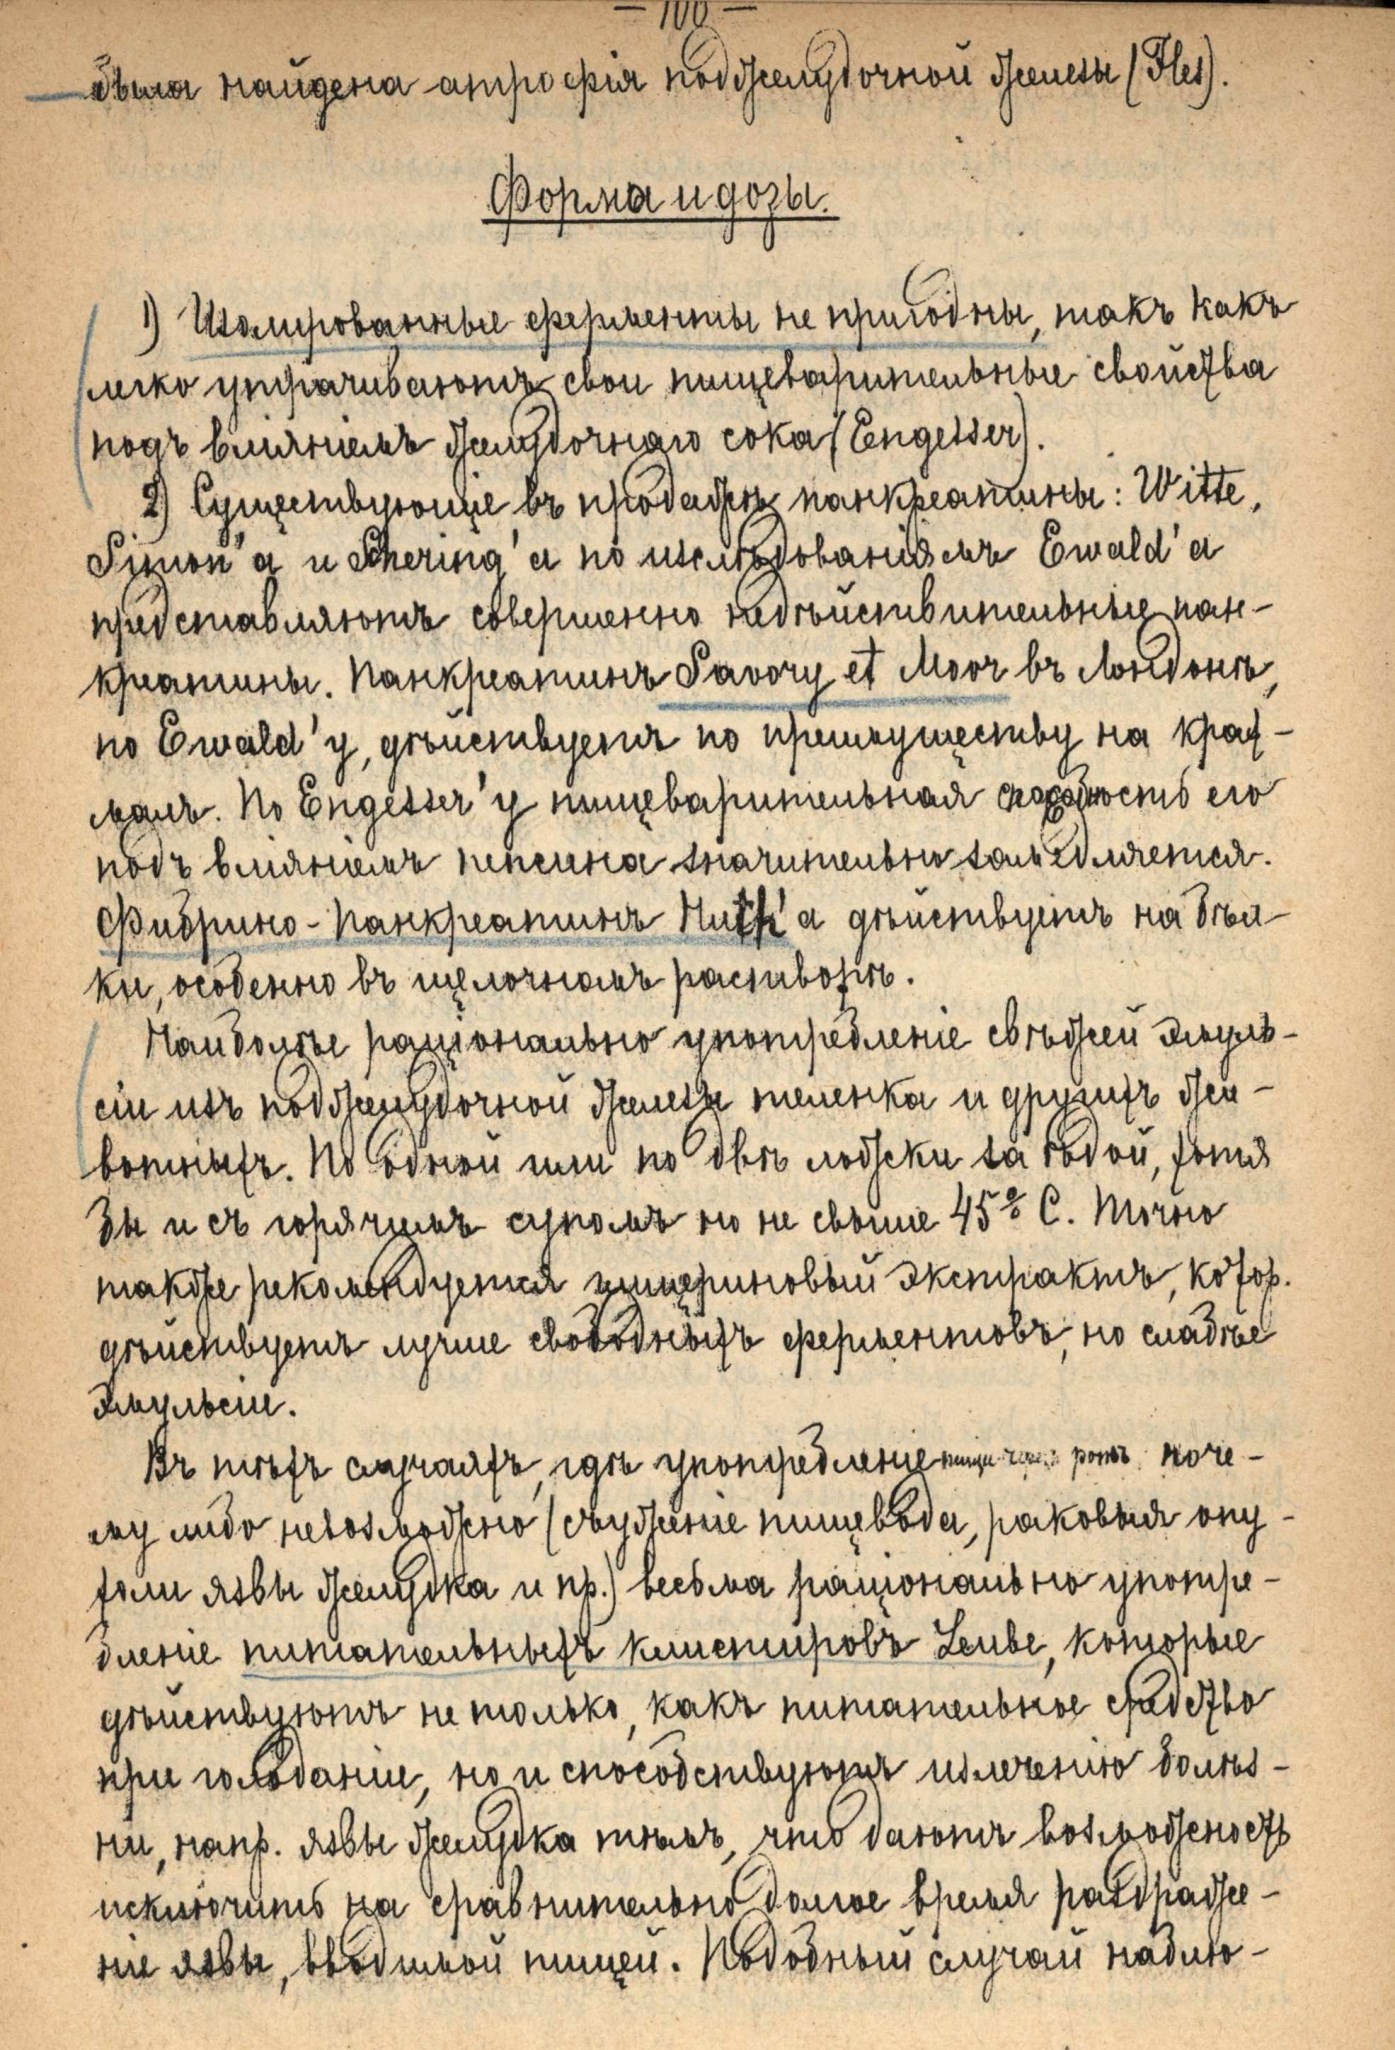 — 100 —
была найдена атрофія поджелудочной железы (Fles).
Форма и дозы.
1) Изолированные ферменты не пригодны, такъ какъ
легко утрачиваютъ свои пищеварительные свойства
подъ вліяніемъ желудочнаго сока (Engesser).
2) Существующіе въ продажѣ панкреатины: Witte,
Simon'а и Schering'а по изслѣдованіямъ Ewald'а
представляютъ совершенно недѣйствительные пан-
креатины. Панкреатинъ Savory et Moor въ Лондонѣ,
по Ewald'у, дѣйствуетъ по преимуществу на крах-
малъ. По Engesser'у пищеварительная способность его
подъ вліяніемъ пепсина значительно замедляется.
Фибрино-Панкреатинъ Huth'а дѣйствуетъ на бѣл-
ки, особенно въ щелочномъ растворѣ.
Наиболѣе раціонально употребленіе свѣжей эмуль-
сіи изъ поджелудочной железы теленка и другихъ жи-
вотныхъ. По одной или по двѣ ложки за ѣдой, хотя
бы и съ горячимъ супомъ но не свыше 45° С. Точно
также рекомендуется глицериновый экстрактъ, котор.
дѣйствуетъ лучше свободныхъ ферментовъ, но слабѣе
эмульсіи.
Въ тѣхъ случаяхъ, гдѣ употребленіе пищи через ротъ поче-
му либо невозможно (съуженіе пищевода, раковыя опу-
холи язвы желудка и пр.) весьма раціонально употре-
бленіе питательныхъ клистировъ Leube, которые
дѣйствуютъ не только, какъ питательное средство
при голоданіи, но и способствуютъ излеченію болѣз-
ни, напр. язвы желудка тѣмъ, что даютъ возможность
исключить на сравнительно долгое время раздраже-
ніе язвы, вводимой пищей. Подобный случай наблю-